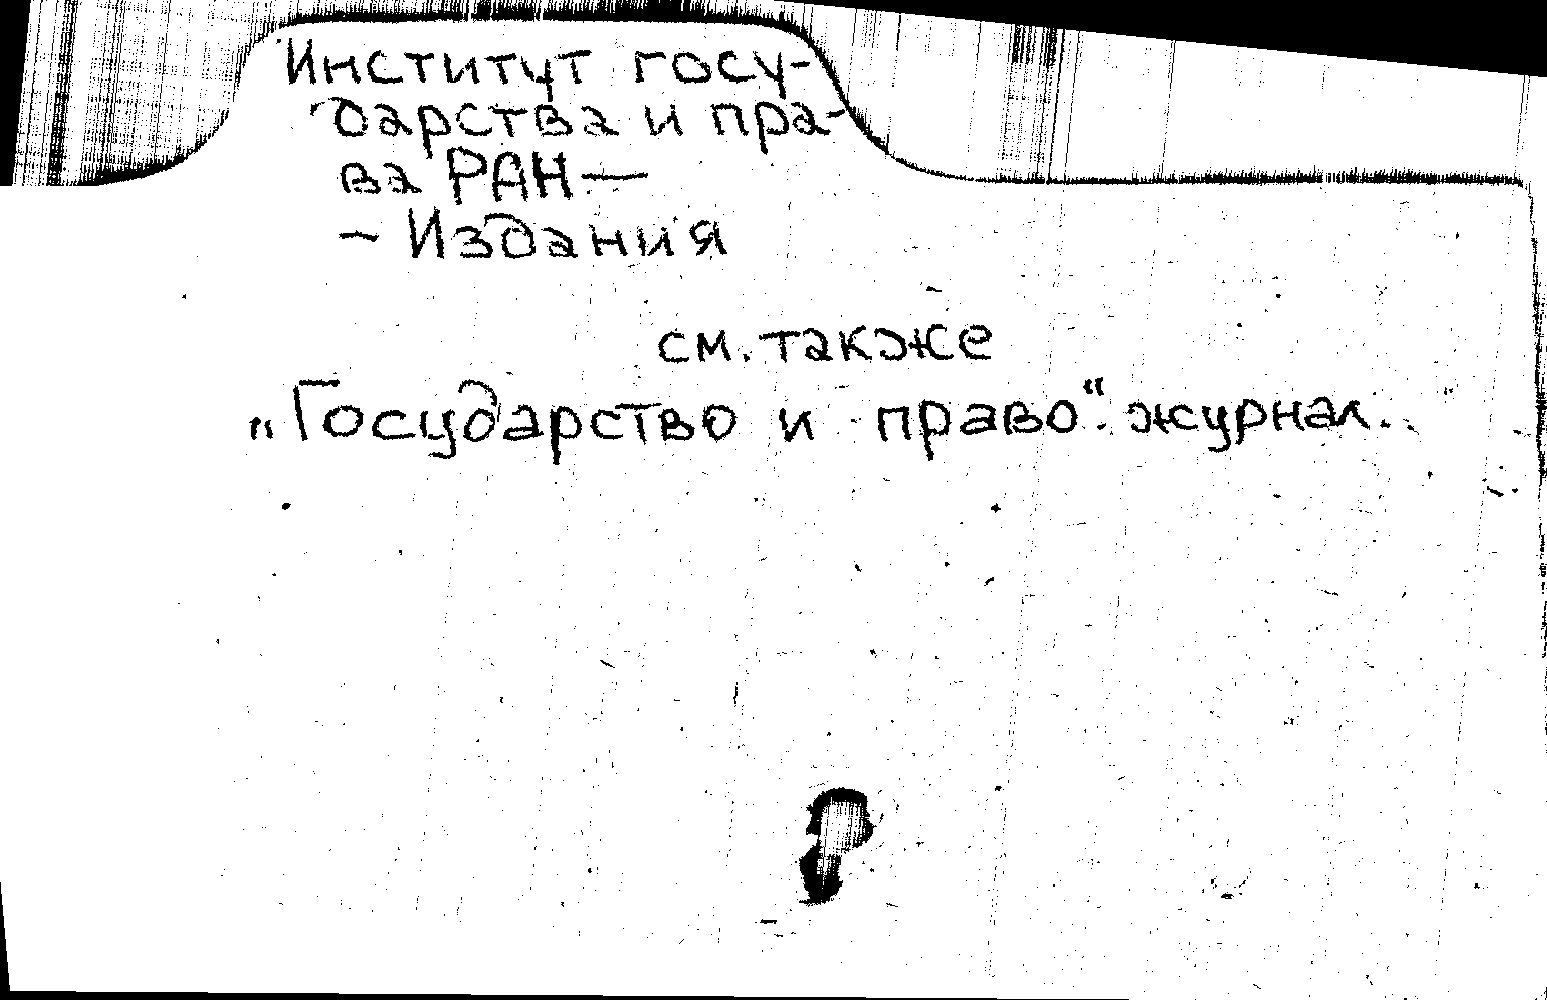 Институт госу-
дарства и пра-
ва РАН—
- Издания
см. также
„Государство и право“. журнал.